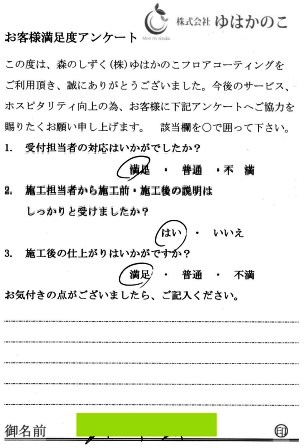 株式会社 ゆはかのこ
お客様満足度アンケート
この度は、森のしずく(株)ゆはかのこフロアコーティングを
ご利用頂き、誠にありがとうございました。今後のサービス、
ホスピタリティ向上の為、お客様に下記アンケートへご協力を
賜りたくお願い申し上げます。 該当欄を○で囲って下さい。
1. 受付担当者の対応はいかがでしたか?
満足 ・ 普通 ・ 不 満
2. 施工担当者から施工前・施工後の説明は
しっかりと受けましたか?
はい ・ いいえ
3. 施工後の仕上がりはいかがですか?
満足 ・ 普通 ・ 不満
お気付きの点がございましたら、ご記入ください。
御名前 ㊞